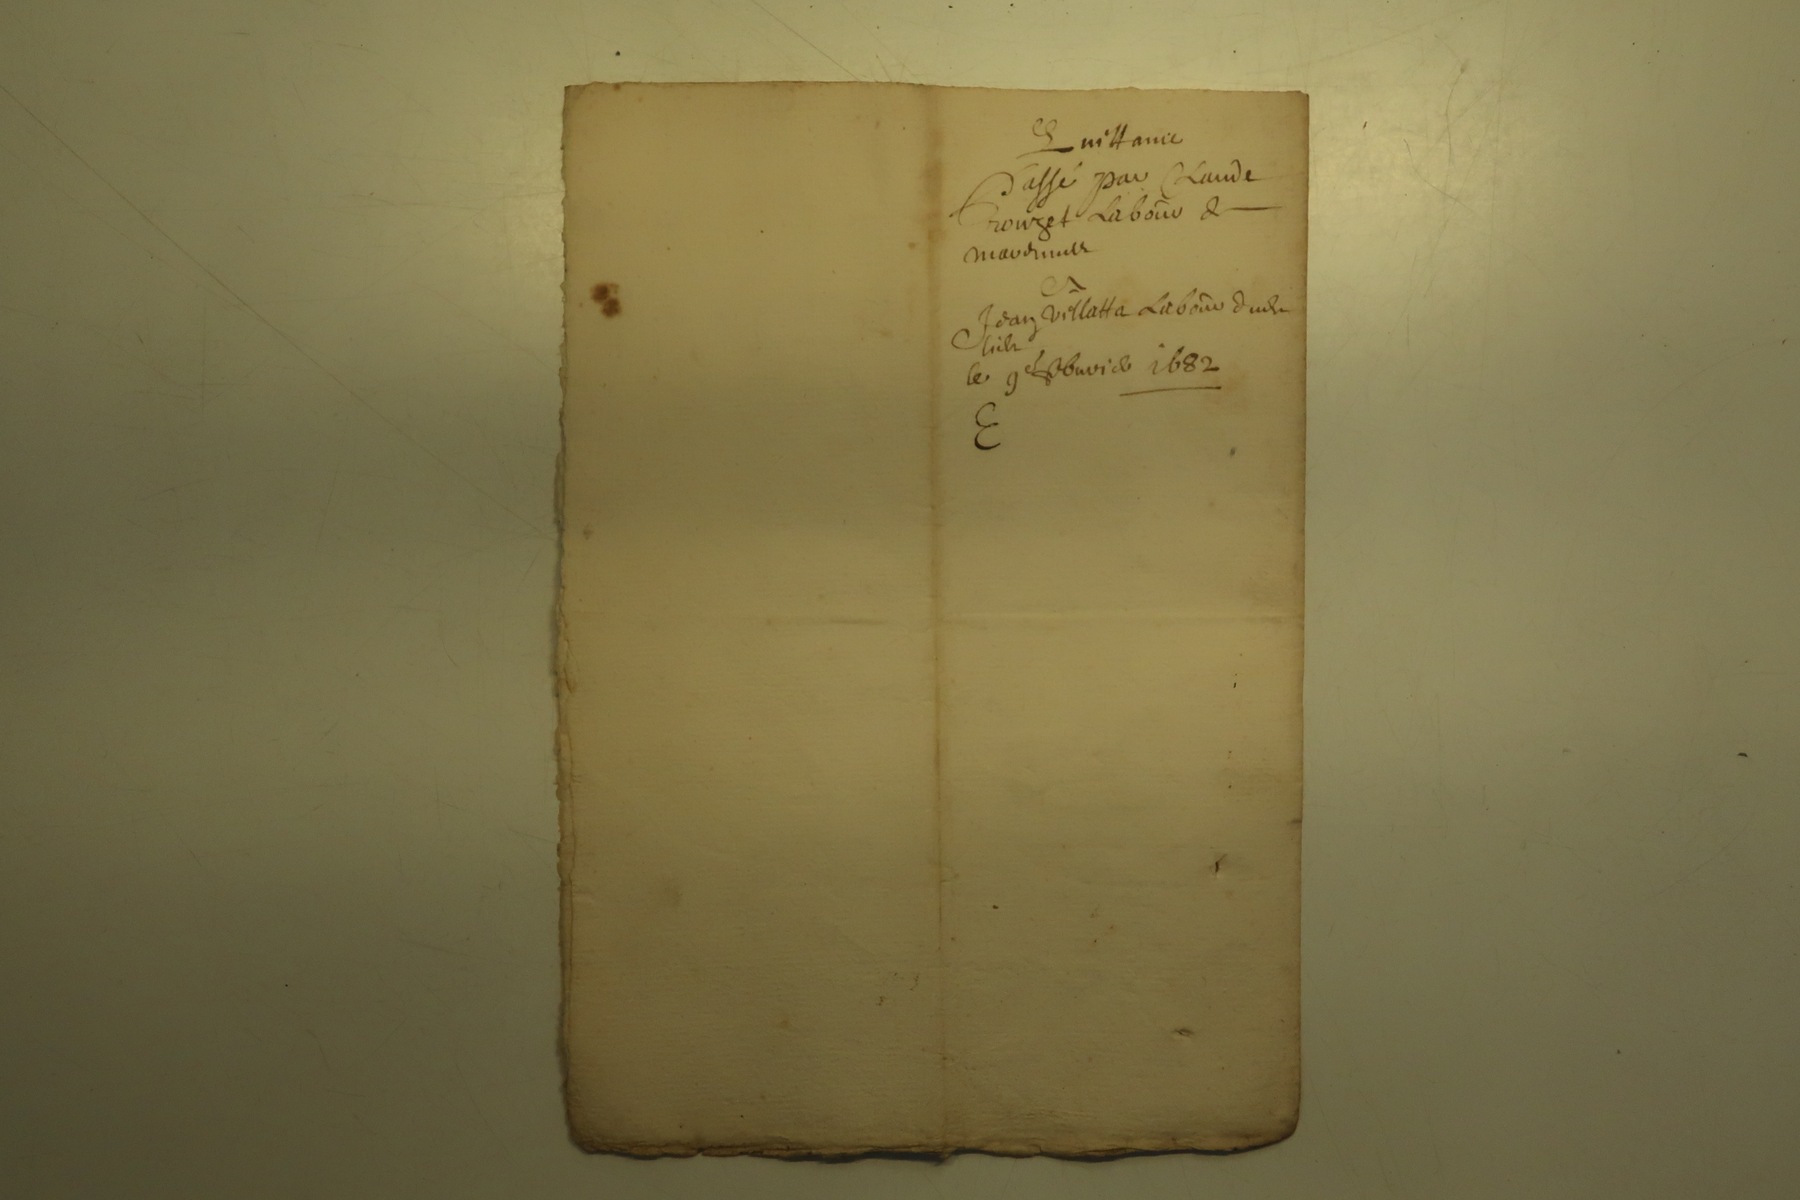 Quittance
Passé par Claude
Crouzet Labour̃ de
A
Jean Villatta Labour̃ dudt
lieu
le 9e febvrier 1682
E